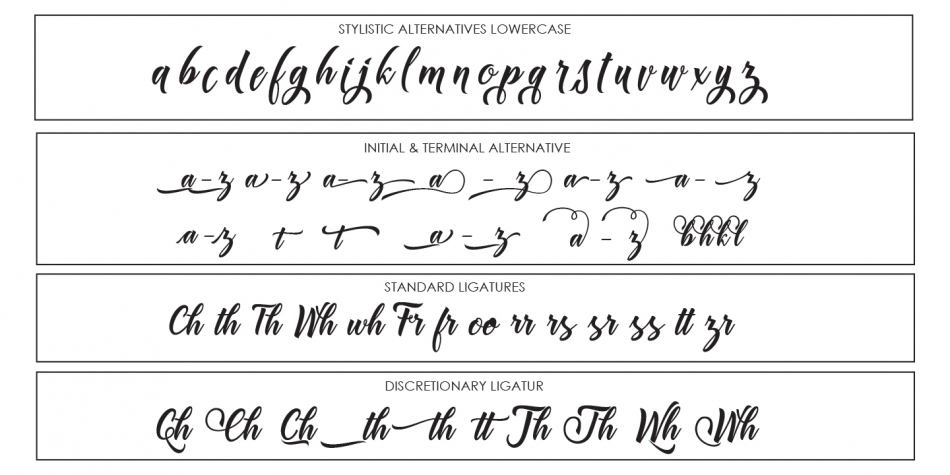 STYLISTIC ALTERNATIVES LOWERCASE
a b c d e f g h i j k l m n o p q r s t u v w x y z
INITIAL & TERMINAL ALTERNATIVE
a - z a - z a - z a - z a - z a - z
a - z t t a - z a - z b h k l
STANDARD LIGATURES
Ch th Th Wh wh Fr fr oo rr rs sr ss tt zr
DISCRETIONARY LIGATUR
Ch Ch Ch th th tt Th Th Wh Wh